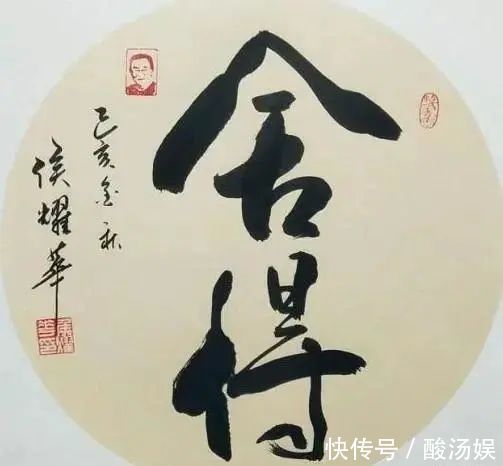 舍得
己亥金秋
侯耀华
快传号/酸汤娱